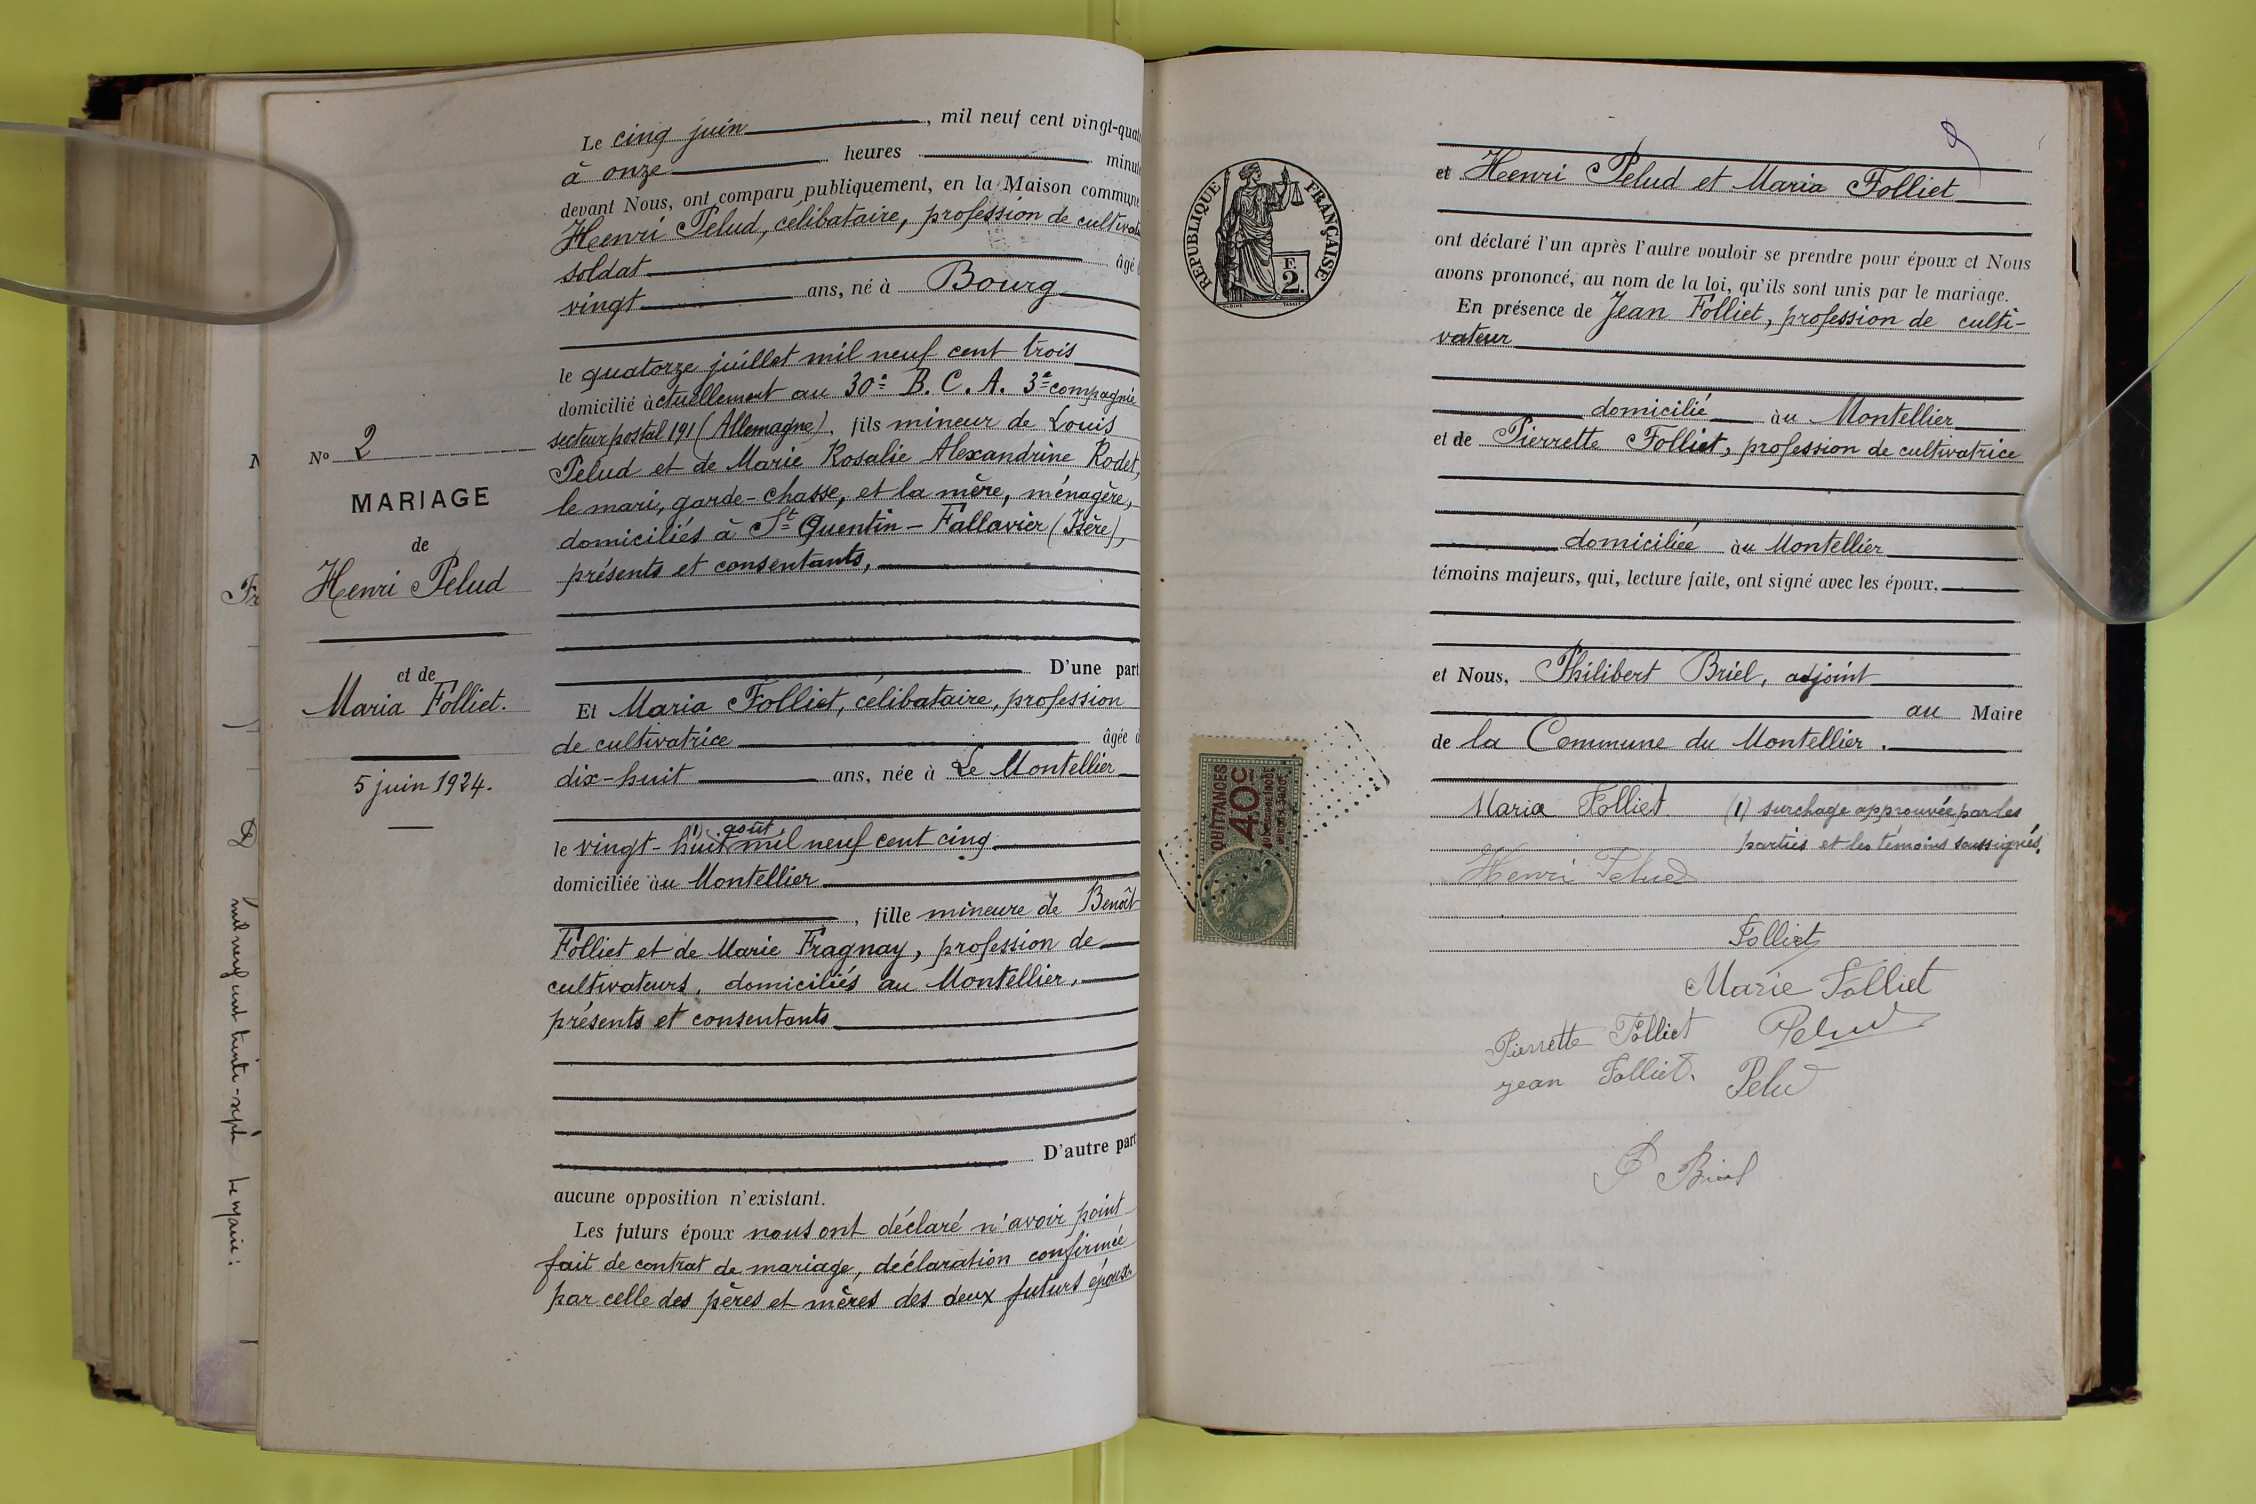 N° 2
MARIAGE
de
Henri Pelud
et de
Maria Folliet.
5 juin 1924.
Le cinq juin, mil neuf cent vingt-quat
à onze heures minut
devant Nous, ont comparu publiquement, en la Maison commune
Henri Pelud, célibataire, profession de cultivat
soldat âgé
vingt ans, né à Bourg
le quatorze juillet mil neuf cent trois
domicilié actuellement au 30e B. C. A. 3e compagnie
secteur postal 191 (Allemagne), fils mineur de Louis
Pelud et de Marie Rosalie Alexandrine Rodet,
le mari, garde-chasse, et la mère, ménagère,
domiciliés à St Quentin-Fallavier (Isère),
présents et consentants,
D'une part
Et Maria Folliet, célibataire, profession
de cultivatrice âgée d
dix-huit ans, née à Le Montellier
(1) août
le vingt-huit mil neuf cent cinq
domiciliée àu Montellier
, fille mineure de Benoît
Folliet et de Marie Fragnay, profession de
cultivateurs, domiciliés au Montellier,
présents et consentants
D'autre part
aucune opposition n'existant.
Les futurs époux nous ont déclaré n'avoir point
fait de contrat de mariage, déclaration confirmée
par celle des pères et mères des deux futurs époux
mil neuf cent trente-sept Le Maire:
9
RÉPUBLIQUE FRANÇAISE
F.
2.
et Henri Pelud et Maria Folliet
ont déclaré l'un après l'autre vouloir se prendre pour époux et Nous
avons prononcé, au nom de la loi, qu'ils sont unis par le mariage.
En présence de Jean Folliet, profession de culti-
vateur
domicilié àu Montellier
et de Pierrette Folliet, profession de cultivatrice
domiciliée àu Montellier
témoins majeurs, qui, lecture faite, ont signé avec les époux.
et Nous, Philibert Briel, adjoint
au Maire
de la Commune du Montellier.
QUITTANCES
40c
Maria Folliet (1) surchage approuvée par les
parties et les témoins soussignés.
Henri Pelud
Folliet
Marie Folliet
Pierrette Folliet Pelud
jean Folliet. Pelud
P Briel